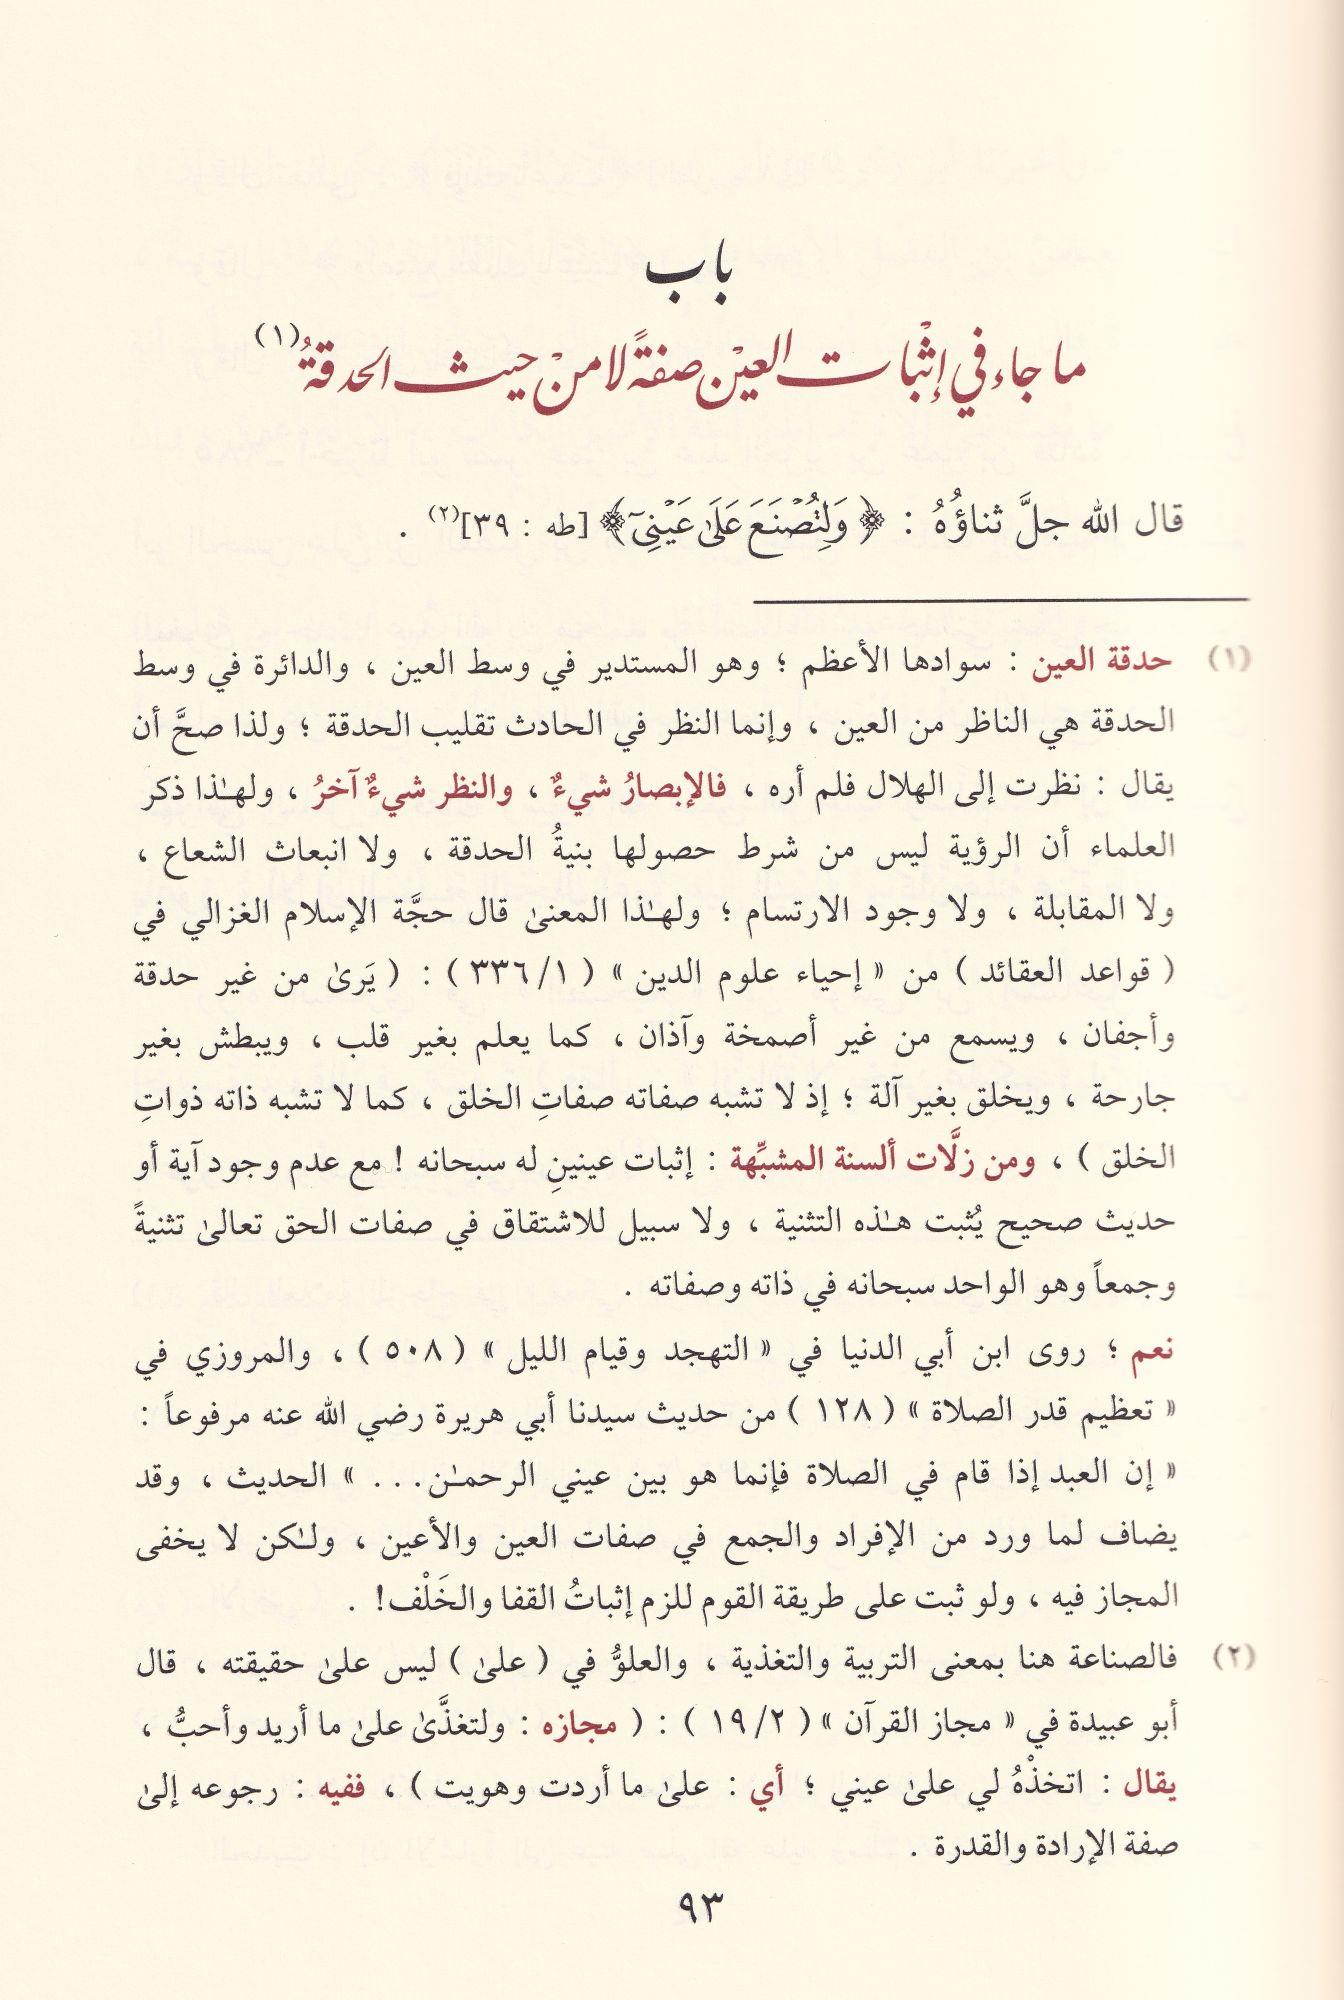 باب
ما جاء في إثبات العين صفةً لا من حيث الحدقةُ(١)
قال الله جلَّ ثناؤُهُ : ﴿ وَلِتُصْنَعَ عَلَىٰ عَيْنِىٓ ﴾ [طه : ٣٩](٢) .
(١) حدقة العين : سوادها الأعظم ؛ وهو المستدير في وسط العين ، والدائرة في وسط
الحدقة هي الناظر من العين ، وإنما النظر في الحادث تقليب الحدقة ؛ ولذا صحَّ أن
يقال : نظرت إلى الهلال فلم أره ، فالإبصارُ شيءٌ ، والنظر شيءٌ آخرُ ، ولهـٰذا ذكر
العلماء أن الرؤية ليس من شرط حصولها بنيةُ الحدقة ، ولا انبعاث الشعاع ،
ولا المقابلة ، ولا وجود الارتسام ؛ ولهـٰذا المعنىٰ قال حجَّة الإسلام الغزالي في
( قواعد العقائد ) من « إحياء علوم الدين » ( ١/ ٣٣٦ ) : ( يَرىٰ من غير حدقة
وأجفان ، ويسمع من غير أصمخة وآذان ، كما يعلم بغير قلب ، ويبطش بغير
جارحة ، ويخلق بغير آلة ؛ إذ لا تشبه صفاته صفاتِ الخلق ، كما لا تشبه ذاته ذواتِ
الخلق ) ، ومن زلَّات ألسنة المشبِّهة : إثبات عينينِ له سبحانه ! مع عدم وجود آية أو
حديث صحيح يُثبت هـٰذه التثنية ، ولا سبيل للاشتقاق في صفات الحق تعالىٰ تثنيةً
وجمعاً وهو الواحد سبحانه في ذاته وصفاته .
نعم ؛ روى ابن أبي الدنيا في « التهجد وقيام الليل » ( ٥٠٨ ) ، والمروزي في
« تعظيم قدر الصلاة » ( ١٢٨ ) من حديث سيدنا أبي هريرة رضي الله عنه مرفوعاً :
« إن العبد إذا قام في الصلاة فإنما هو بين عيني الرحمـٰن... » الحديث ، وقد
يضاف لما ورد من الإفراد والجمع في صفات العين والأعين ، ولـٰكن لا يخفى
المجاز فيه ، ولو ثبت على طريقة القوم للزم إثباتُ القفا والخَلْف! .
(٢) فالصناعة هنا بمعنى التربية والتغذية ، والعلوُّ في ( علىٰ ) ليس علىٰ حقيقته ، قال
أبو عبيدة في « مجاز القرآن » ( ٢/ ١٩ ) : ( مجازه : ولتغذَّىٰ علىٰ ما أريد وأحبُّ ،
يقال : اتخذْهُ لي علىٰ عيني ؛ أي : علىٰ ما أردت وهويت ) ، ففيه : رجوعه إلىٰ
صفة الإرادة والقدرة .
٩٣